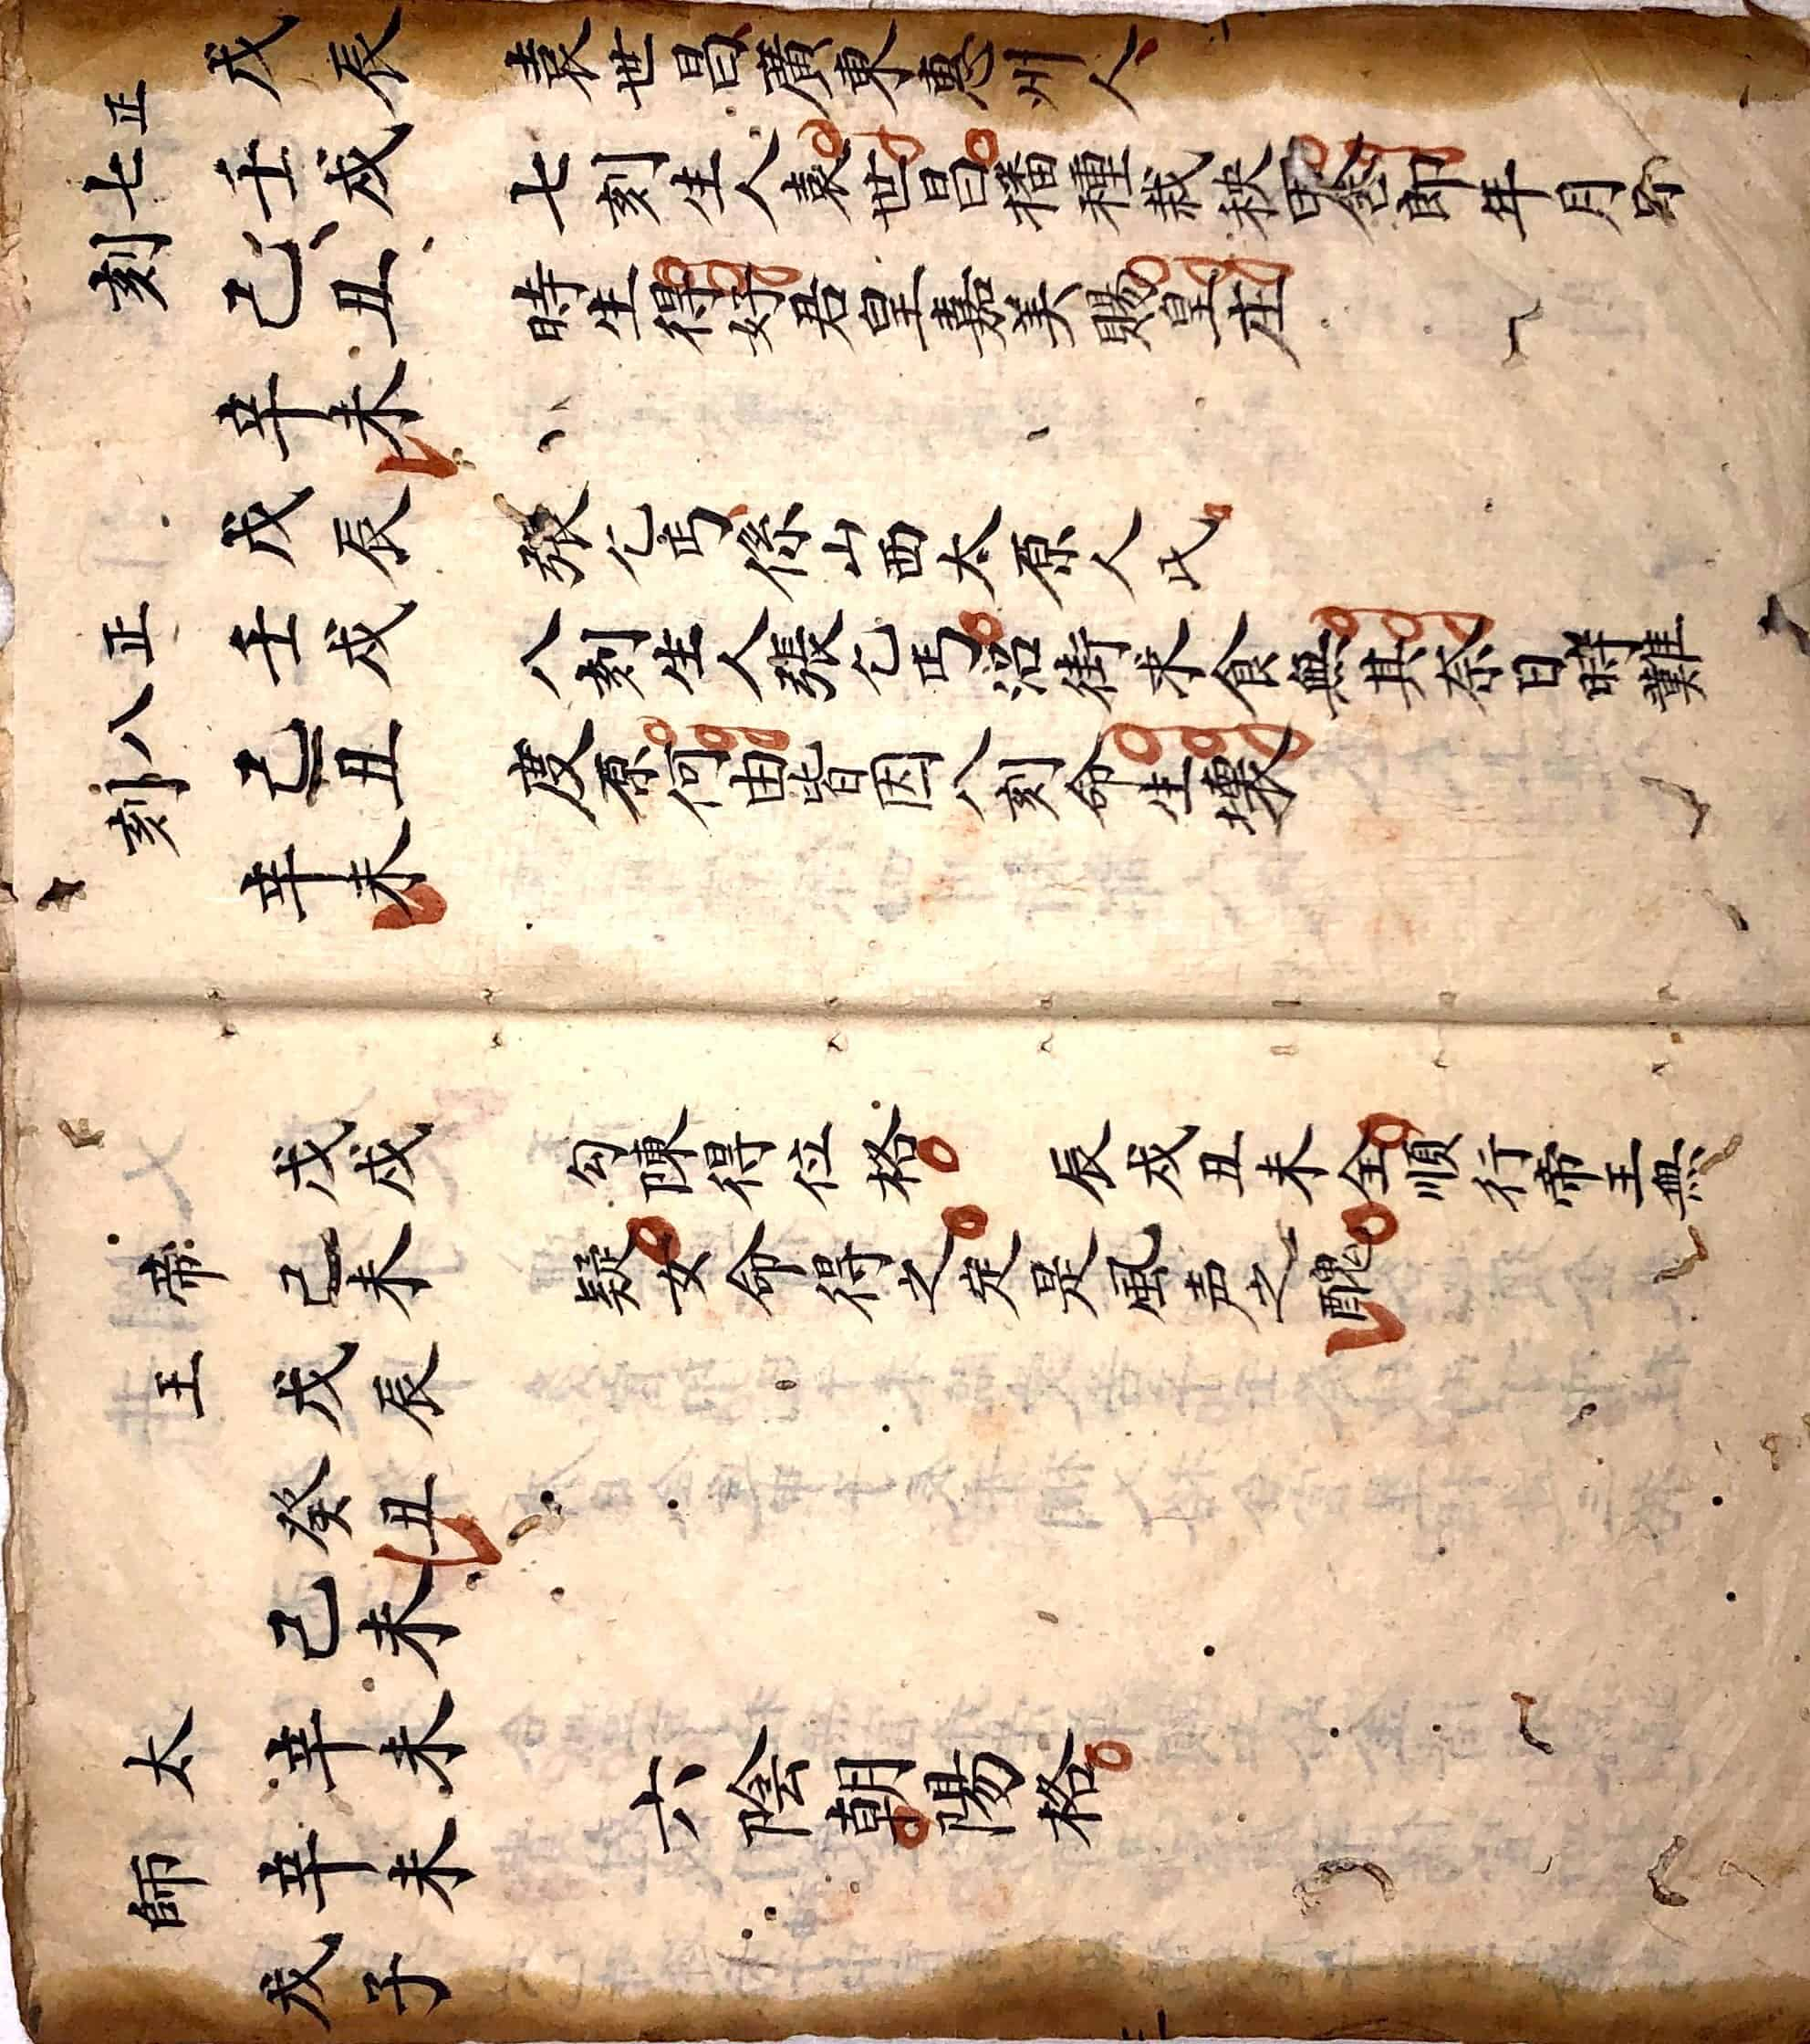 正七刻
戊辰
壬戌
己丑
辛未
袁世昌廣東惠州人
七刻生人袁世昌播種栽秧郎年月
時生得好君皇嘉美賜皇庄
正八刻
戊辰
壬戌
己丑
辛未
張乞丐係山西太原人氏
八刻生人張乞丐沿街求食無其奈日時難
度原何由皆因八刻命生壞
帝王
戊戌
己未
戊辰
癸丑
勾陳得位格 辰戌丑未全順行帝王無
疑女命得之定是風声之醜
太師
己未
辛未
辛未
戊子
六陰朝陽格